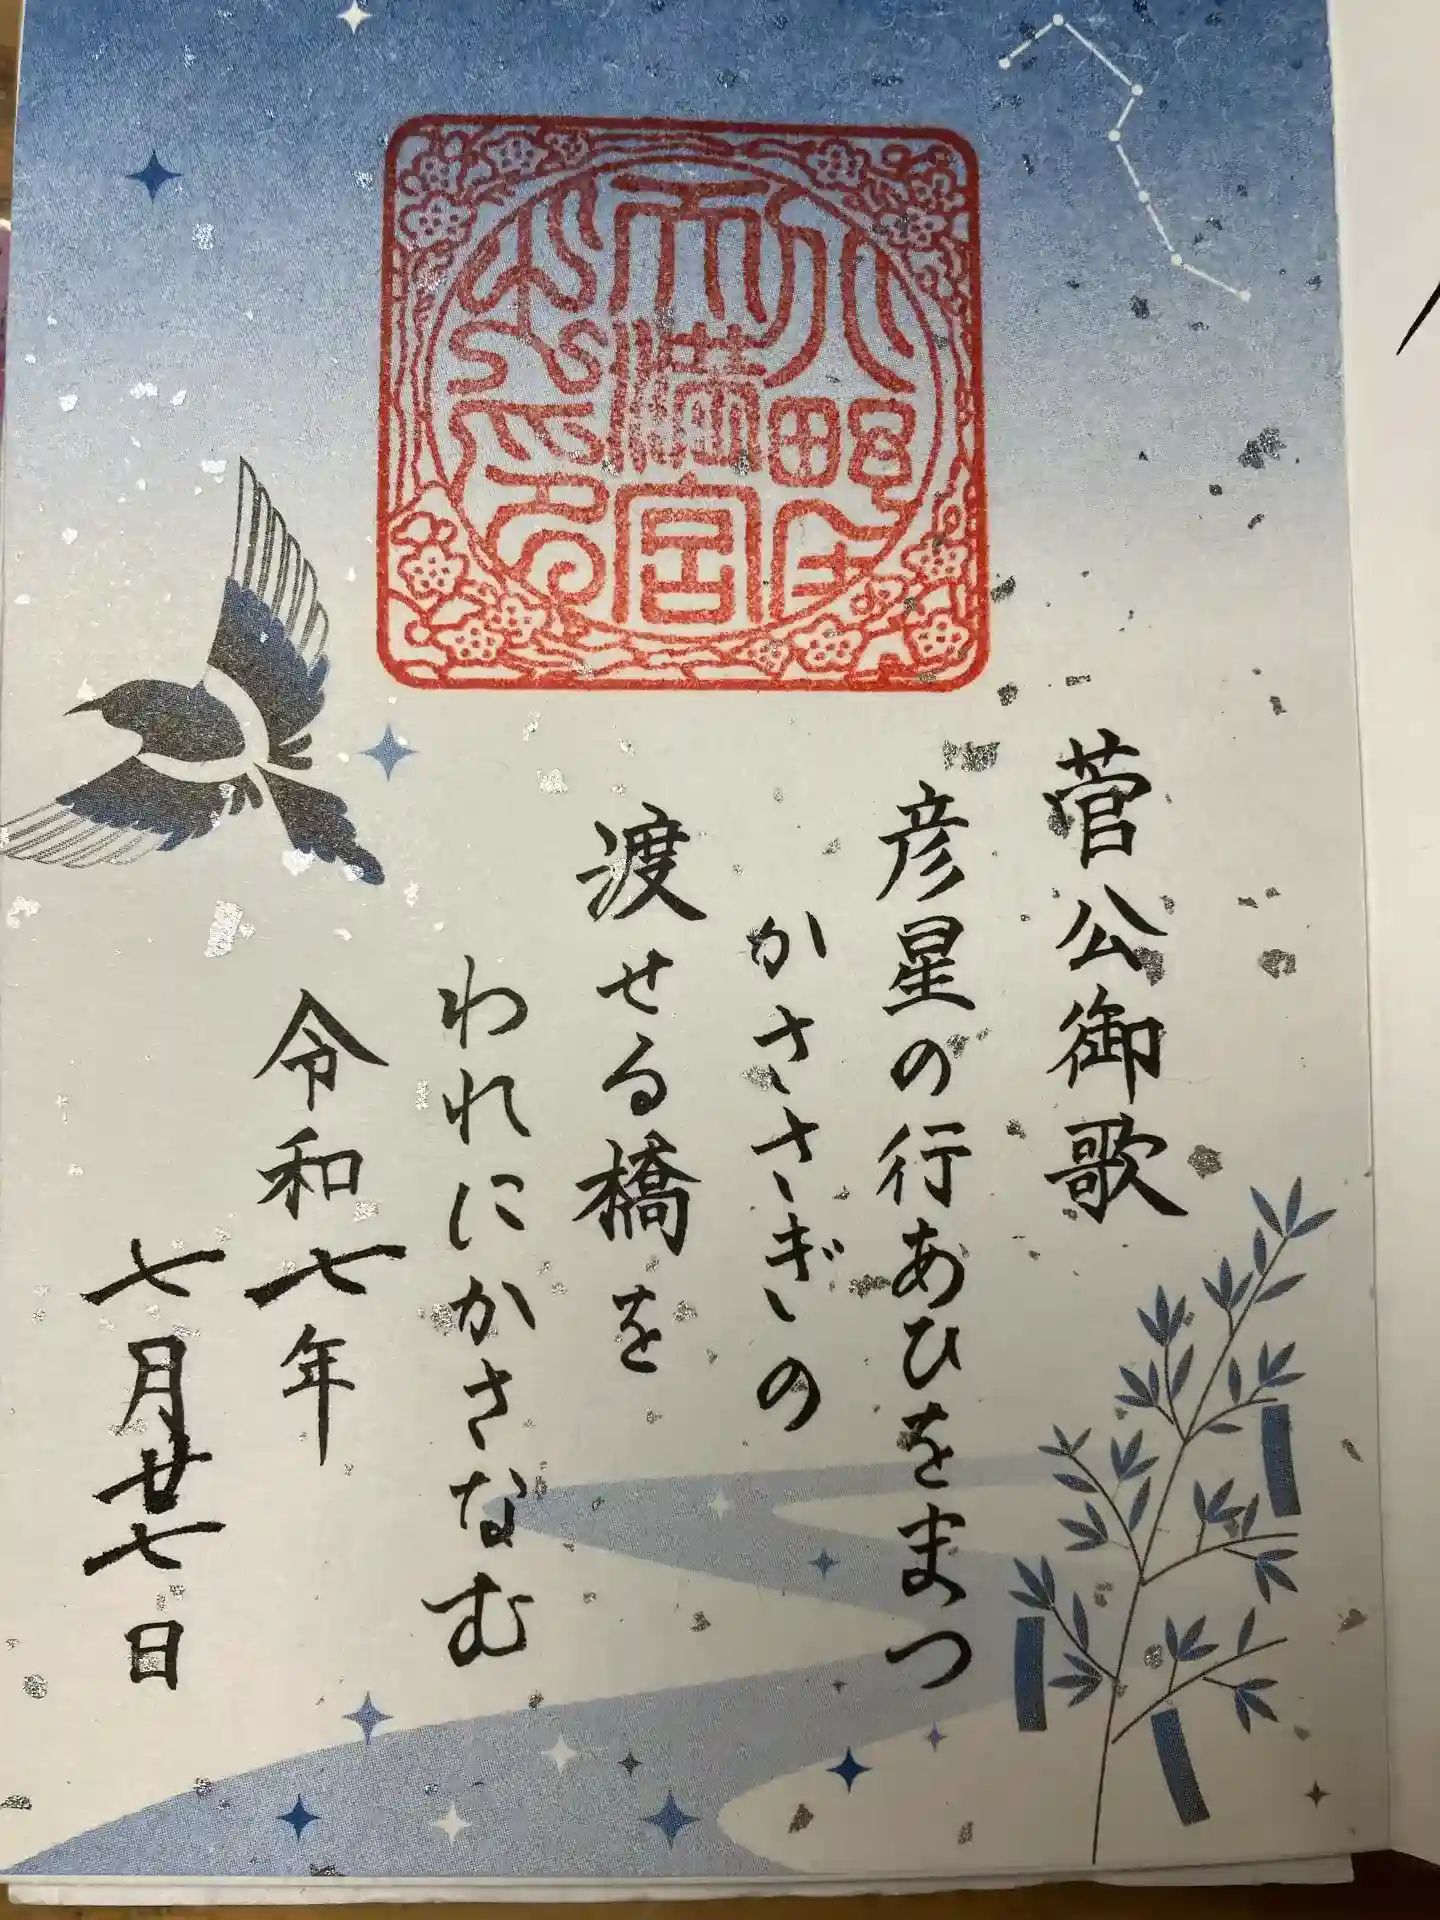 天満宮
菅公御歌
彦星の行あひをまつ
かささぎの
渡せる橋を
われにかさなむ
令和七年
七月廿七日